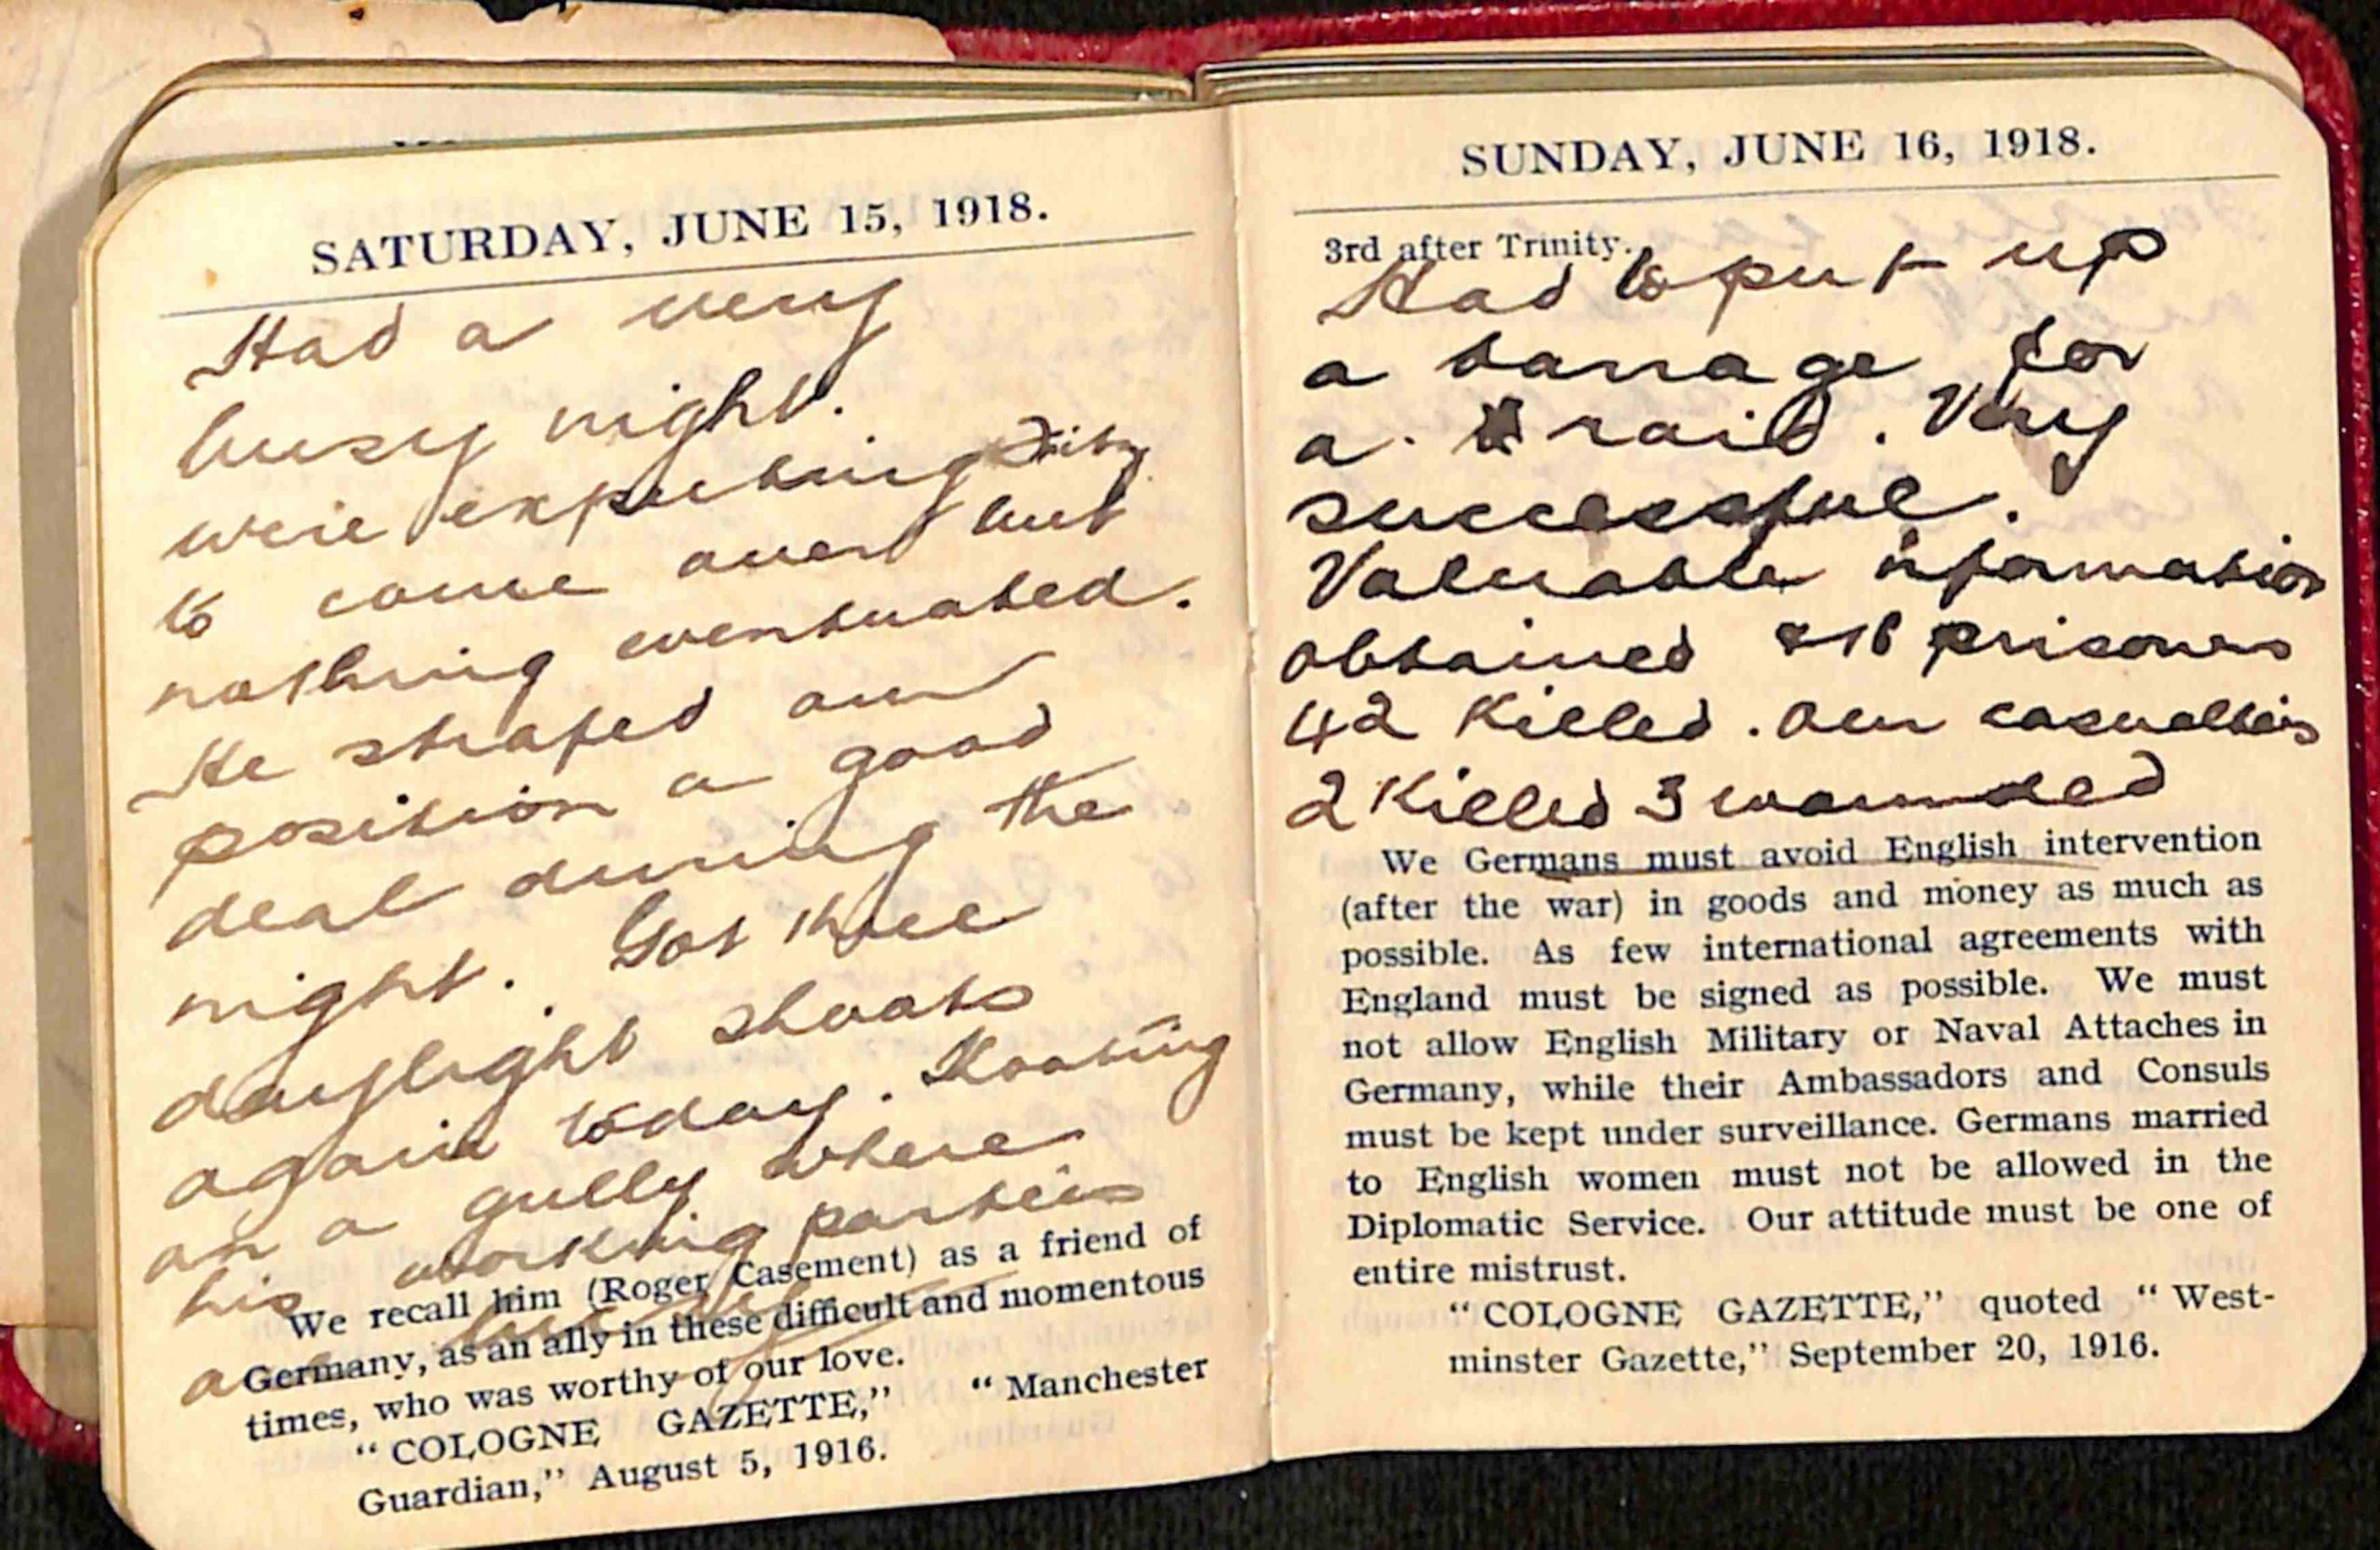 SATURDAY, JUNE 15, 1918.
Had a very
busy night.
were expecting Fritz
to come over but
nothing eventuated.
He strafed our
position a good
deal during the
night. Got three
daylight shoots
again today. Shooting
on a gully where
his working parties
We recall him (Roger Casement) as a friend of
Germany, as an ally in these difficult and momentous
times, who was worthy of our love.
"COLOGNE GAZETTE," "Manchester
Guardian," August 5, 1916.
SUNDAY, JUNE 16, 1918.
3rd after Trinity.
Had to put up
a barrage for
a raid. Very
successful.
Valuable information
obtained & 18 prisoners
42 Killed. Our casualties
2 Killed 3 wounded
We Germans must avoid English intervention
(after the war) in goods and money as much as
possible. As few international agreements with
England must be signed as possible. We must
not allow English Military or Naval Attaches in
Germany, while their Ambassadors and Consuls
must be kept under surveillance. Germans married
to English women must not be allowed in the
Diplomatic Service. Our attitude must be one of
entire mistrust.
"COLOGNE GAZETTE," quoted "West-
minster Gazette," September 20, 1916.